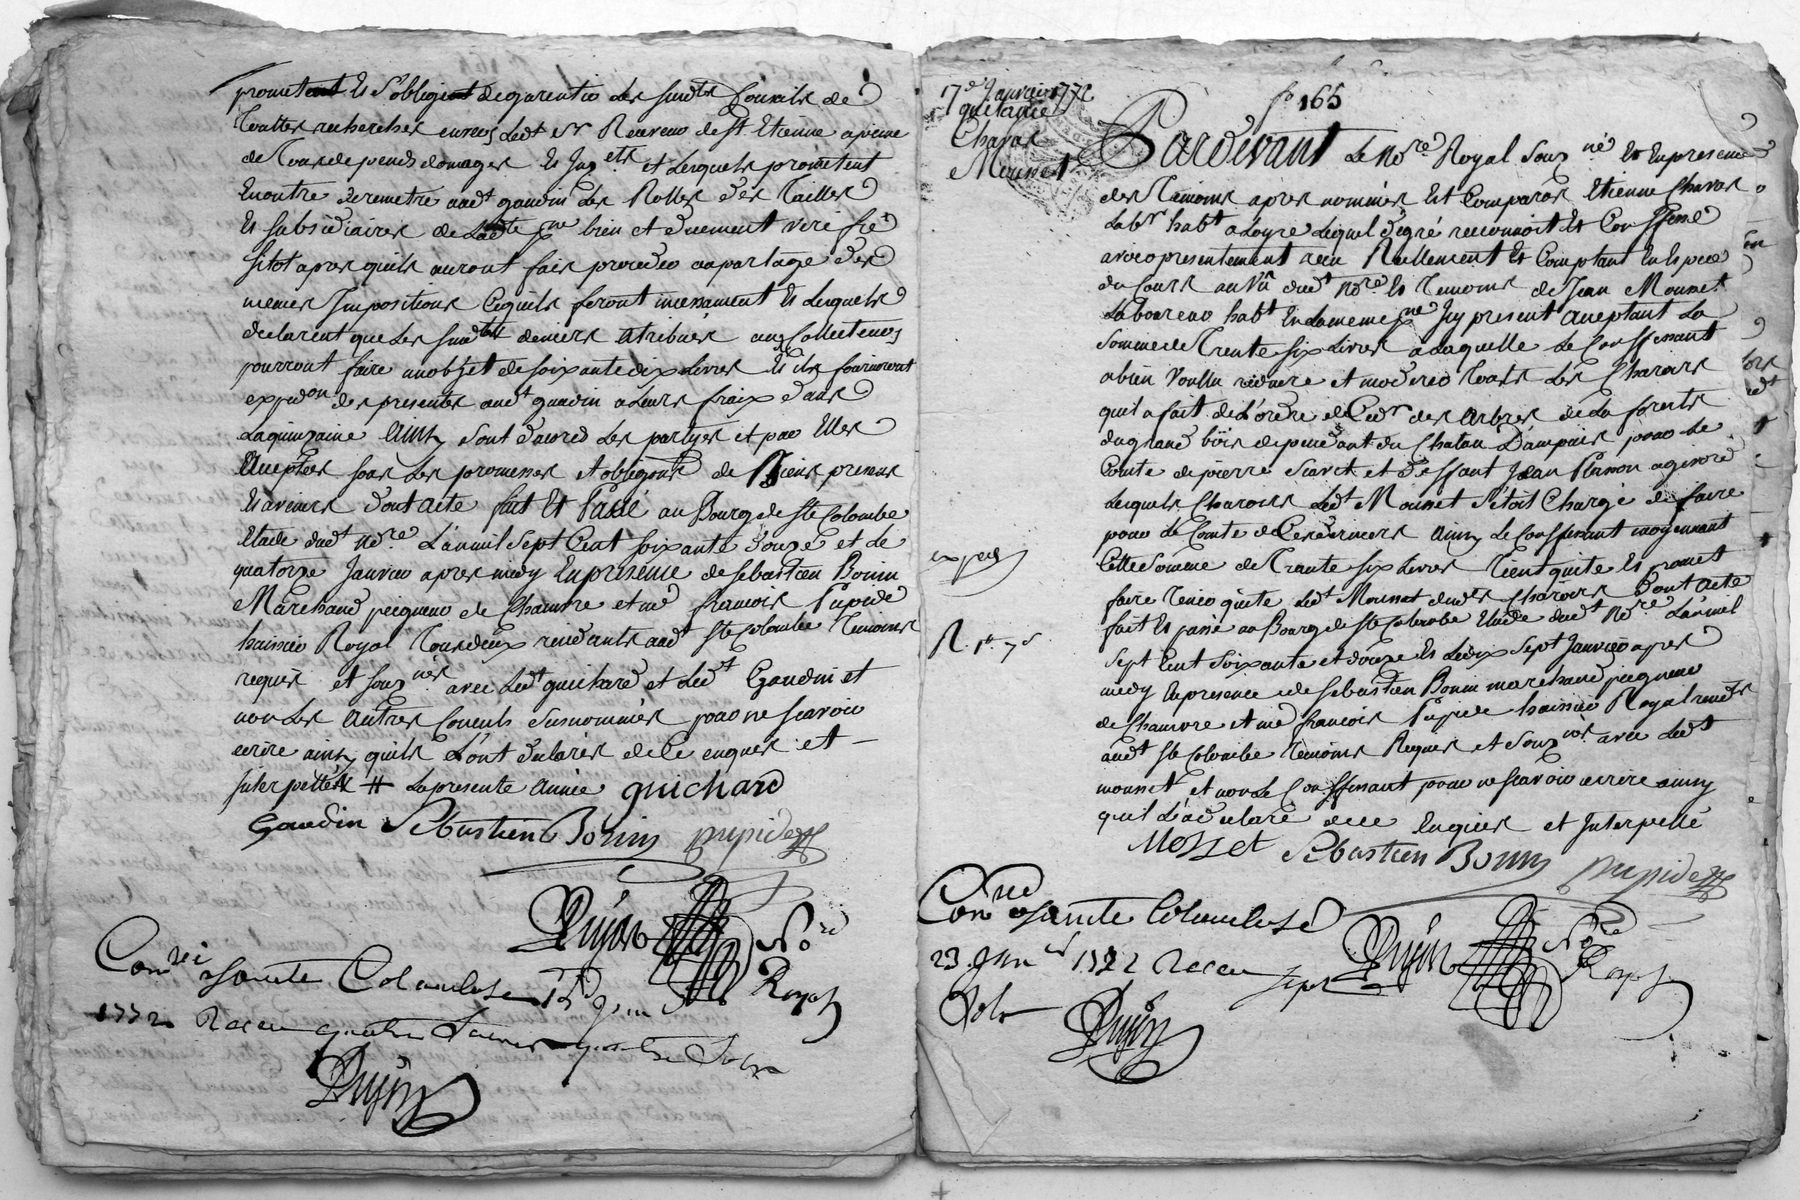 promettent Et S'obligent de garentir les susdts Consuls de
Touttes recherches envers Ledt Sr Receveur de St Etienne a peine
de Tous depends domages Et Jnterets et Lesquels prometent
En outre de remetre audt gaudin Les Rolles des Tailles
Et subsidiaires de Ladte psse bien et duement verifié
sitot apres quils auront fait proceder au partage des
memes Jmpositions Cequils feront incessament Et Lesquels
declarent que Les susdts deniers atribués aux Collecteurs
pourront faire un objet de soixante dix Livres Et ils fourniront
expedon des presentes audt gaudin a Leurs fraix dans
La quinzaine ainsy sont d'acord Les partyes et par Elles
Aceptées sous Les promesses et obligons de Biens presens
Et avenirs dont acte fait Et Passé au Bourg de Ste Colombe
Etude dudt Nore L'an mil sept Cent soixante douze et Le
quatorze Janvier apres midy En presence de sebastien Bonin
Marchand peigneur de Chanvre et me francois Pupide
huissier Royal Tous deux residants audt Ste Colombe Temoins
requis et souznes avec Ledt guichard et Ledt Gaudin et
non Les autres Consuls susnommés pour ne scavoir
ecrire ainsy quils L'ont declarés de ce enquis et
Jnterpellés # La presente année guichard
Gaudin Sebastien Bonin pupide
Dujon Nore
Royal
Con. a Sainte Colombe 15
1772 Recu quatre Livres quatre Sols
Dujon
17e Janvier 1772
quitance
Chavas
Mousset
fo 165
Pardevant Le Nore Royal souzné Et En presence
des Temoins apres nommés Est Comparos Etienne Chavas
Labr habt a Loyre Lequel de gré reconnoit Et Confesse
avoir presentement recu Reellement Et Comptant En Especes
du Cours au vû dudt Nore Et Temoins de Jean Mousset
Laboureur habt En La meme psse Jcy present aceptant La
somme de Trente six Livres a Laquelle Le Confessant
a bien voullu reduire et moderer Touts Les Charois
quil a fait de L'ordre de Cedr des arbres de La forests
du grand bois dependant du Chatau D'ampuis pour Le
Comte de pierre et deffunt Jean
Lesquels Charois Ledt Mousset s'etoit Chargé de faire
pour Le Comte de Ces derniers ainsy Le Confessant moyennant
Cette somme de Trente six Livres Tient quite Et promet
faire Tenir quite Ledt Mousset desdts Charois Dont acte
fait Et passé au Bourg de Ste Colombe Etude dudt Nore L'an mil
sept Cent soixante et douze Et Le dix sept Janvier apres
midy En presence de sebastien Bonin marchand peigneur
de Chanvre et me francois Pupide huissier Royal residts
audt Ste Colombe Temoins Requis et souznes avec Ledt
mousset et non Le Confessant pour ne scavoir ecrire ainsy
quil L'a declaré de ce Enquis et Jnterpellé
Mosset Sebastien Bonin pupide
Dujon Nore
Royal
Con. a Sainte Colombe
23 1772 Recu sept
Sols
Dujon